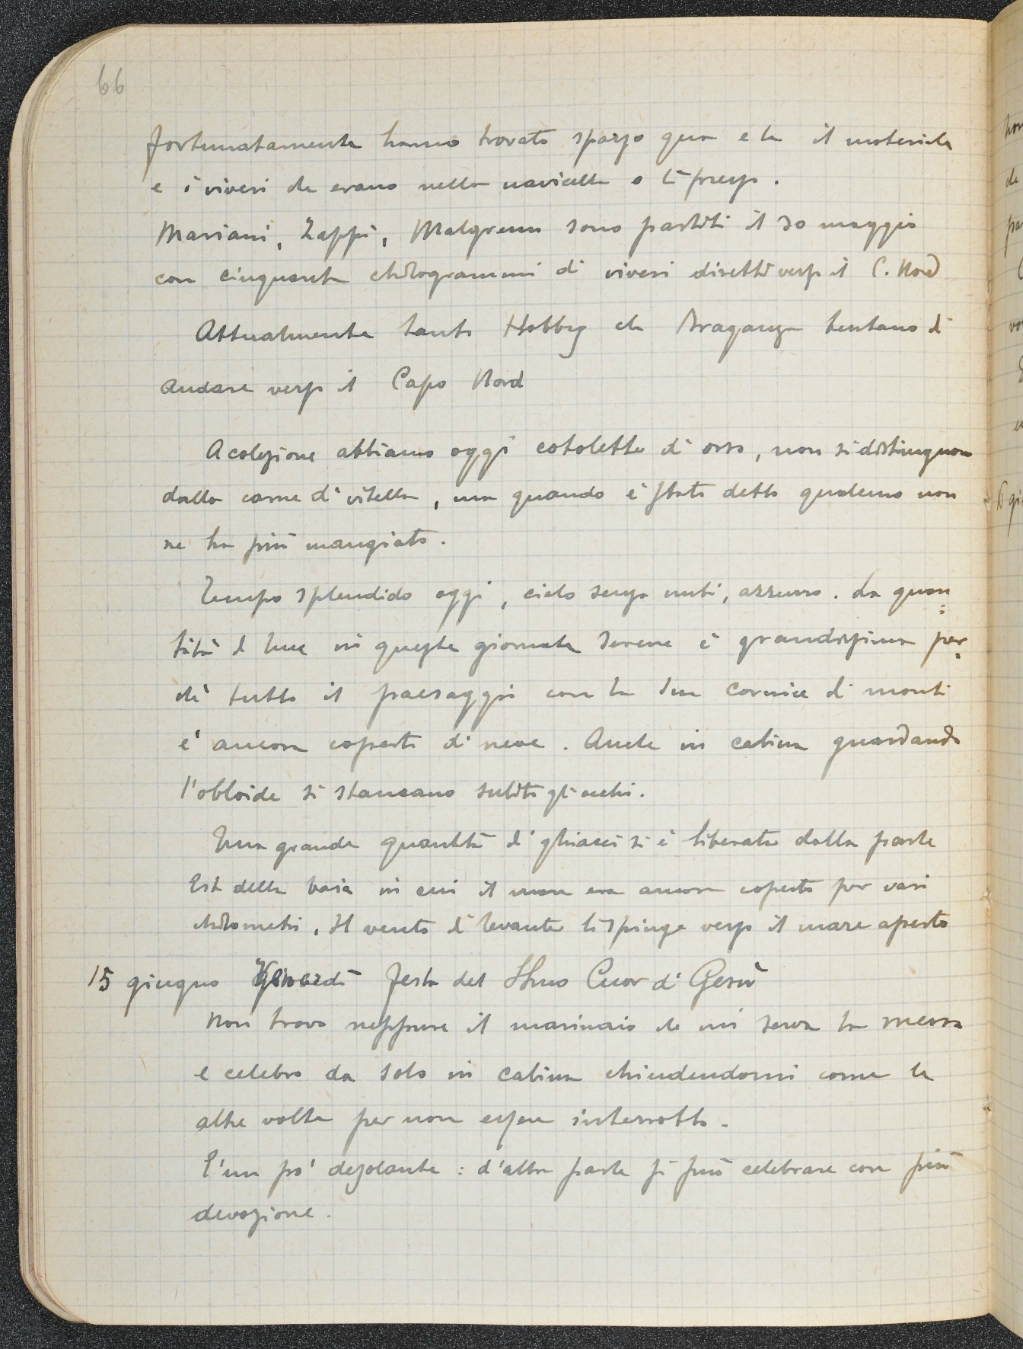 66
fortunatamente hanno trovato sparso qua e la il materiale
e i viveri che erano nella navicella o lì presso.
Mariani, Zappi, Malgreen sono partiti il 30 maggio
con cinquanta chilogrammi di viveri diretti verso il C. Nord
Attualmente tanto Hobby che Braganza tentano di
andare verso il Capo Nord
A colazione abbiamo oggi cotolette di orso, non si distinguono
dalla carne di vitella, ma quando è stato detto qualcuno non
ne ha più mangiato.
Tempo splendido oggi, cielo senza nubi, azzurro. La quan=
tità di luce in queste giornate serene è grandissima per=
chè tutto il paesaggio con la sua cornice di monti
è ancora coperto di neve. Anche in cabina guardando
l'obloide si stancano subito gli occhi.
Una grande quantità di ghiacci si è liberata dalla parte
Est della baia in cui il mare era ancora coperto per vari
chilometri. Il vento di levante li spinge verso il mare aperto
15 giugno Venerdì festa del SSmo Cuor di Gesù
Non trovo neppure il marinaio che mi serva la messa
e celebro da solo in cabina chiudendomi come le
altre volte per non essere interrotto.
E' un po' desolante: d'altra parte si può celebrare con più
devozione.